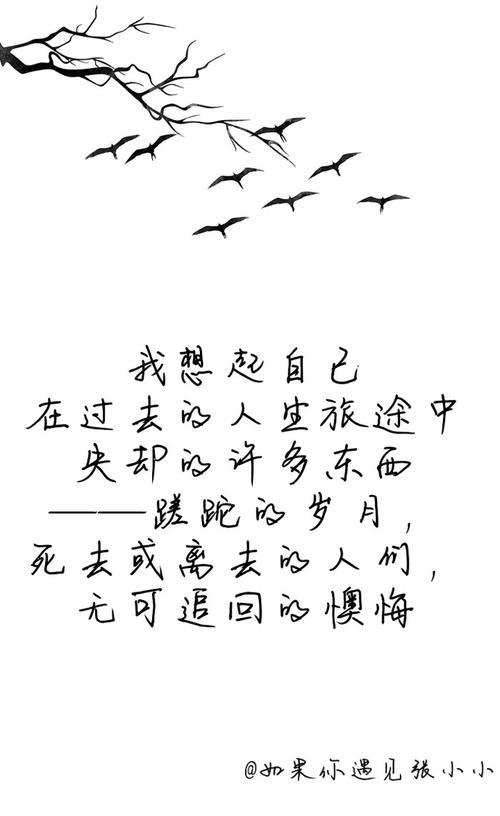 我想起自己
在过去的人生旅途中
失却的许多东西
——蹉跎的岁月，
死去或离去的人们，
无可追回的懊悔
@如果你遇见张小小